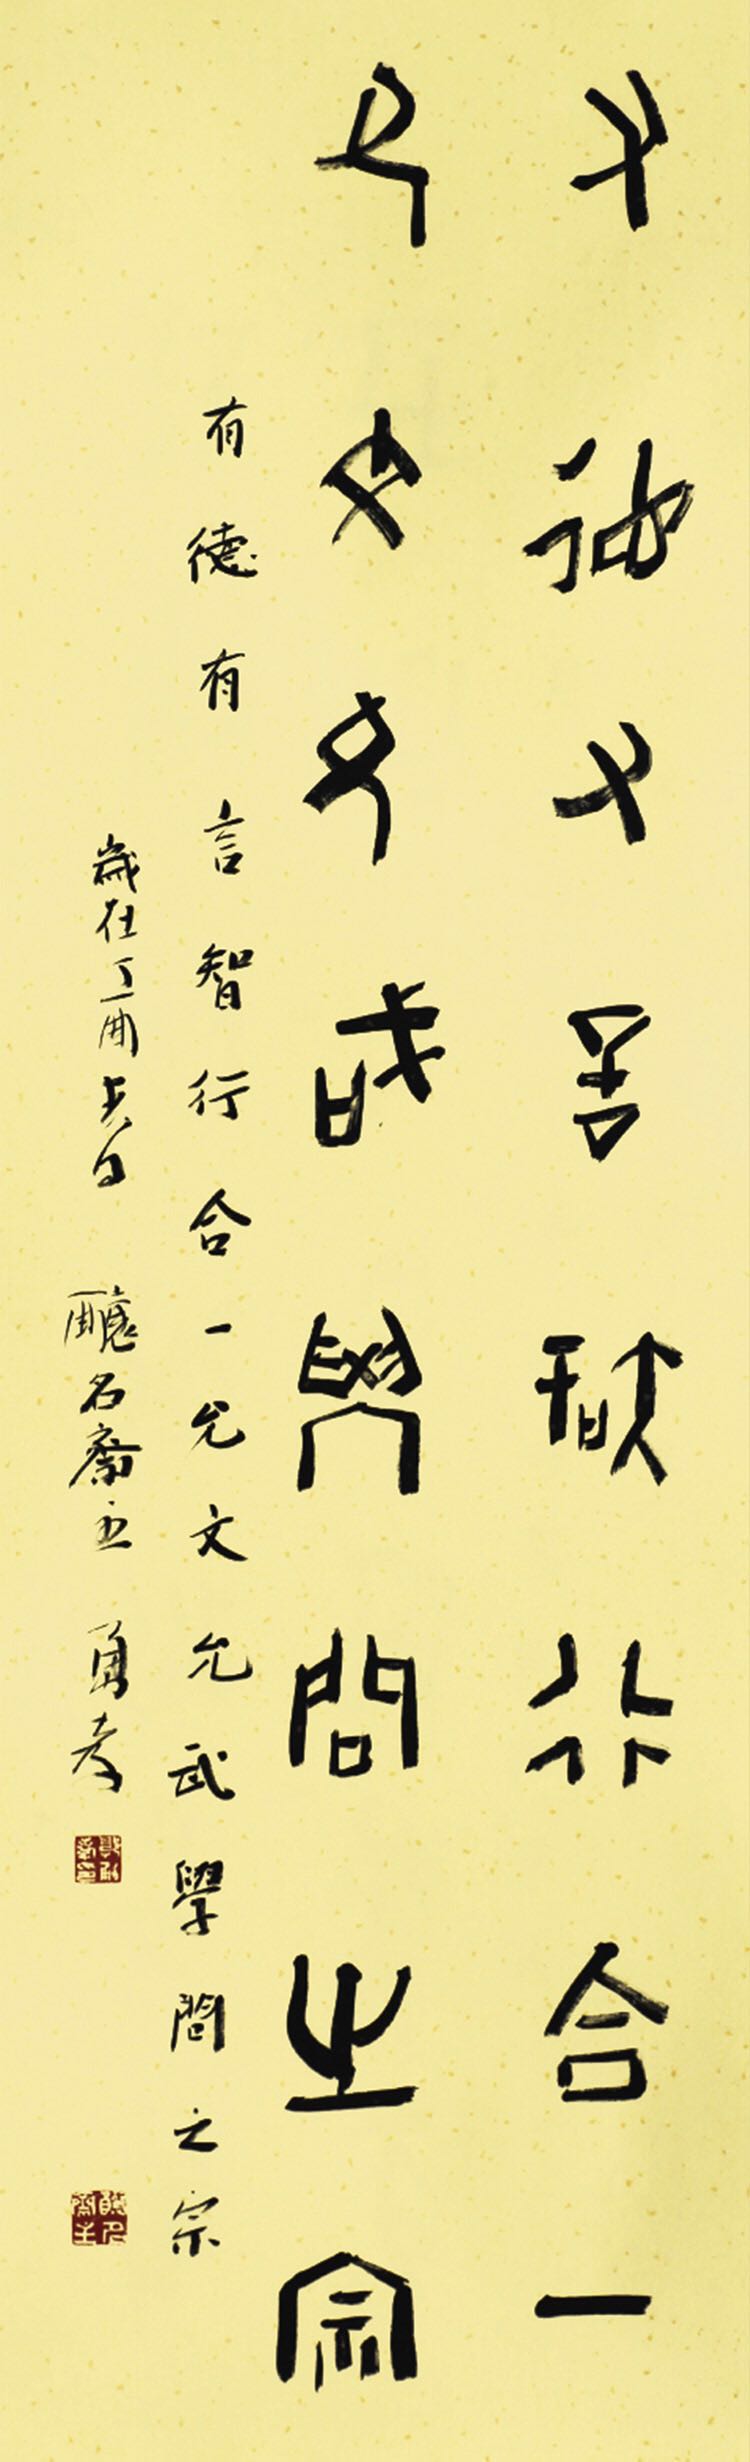 有德有言智行合一
允文允武學問之宗
有德有言智行合一允文允武學問之宗
歲在丁酉春日 釀名齋主 勇孝